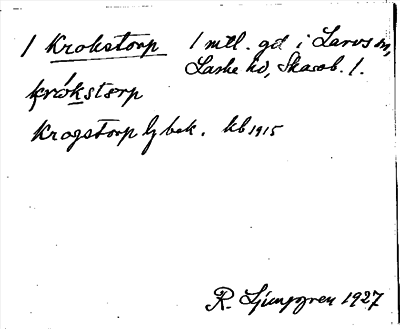 1 Krokstorp 1 mtl. gd i Larvs sn,
Laske hd, Skarab. l.
krókstɛrp
Krogstorp lg bek. kb 1915
R. Ljunggren 1927